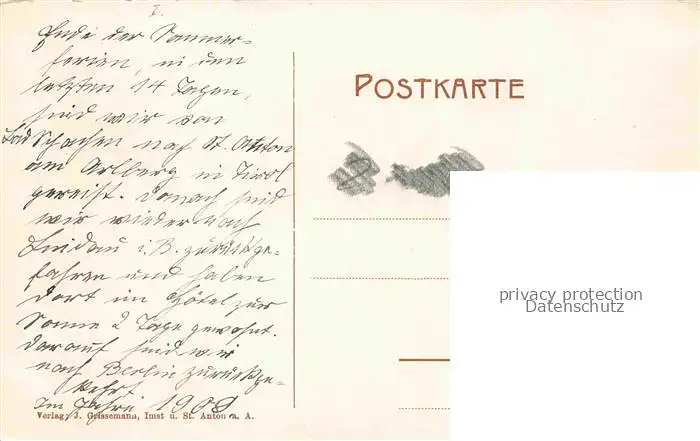 I.
Ende der Sommer-
ferien, in den
letzten 14 Tagen,
sind wir von
Bad Schachen nach St. Anton
am Arlberg in Tirol
gereist. Danach sind
wir wieder nach
Lindau i. B. zurückge-
fahren und haben
dort im Hôtel zur
Sonne 2 Tage gewohnt.
Darauf sind wir
nach Berlin zurückge-
kehrt.
Im Jahre 1908
Verlag: J. Grissemann, Imst u. St. Anton a. A.
POSTKARTE
privacy protection
Datenschutz